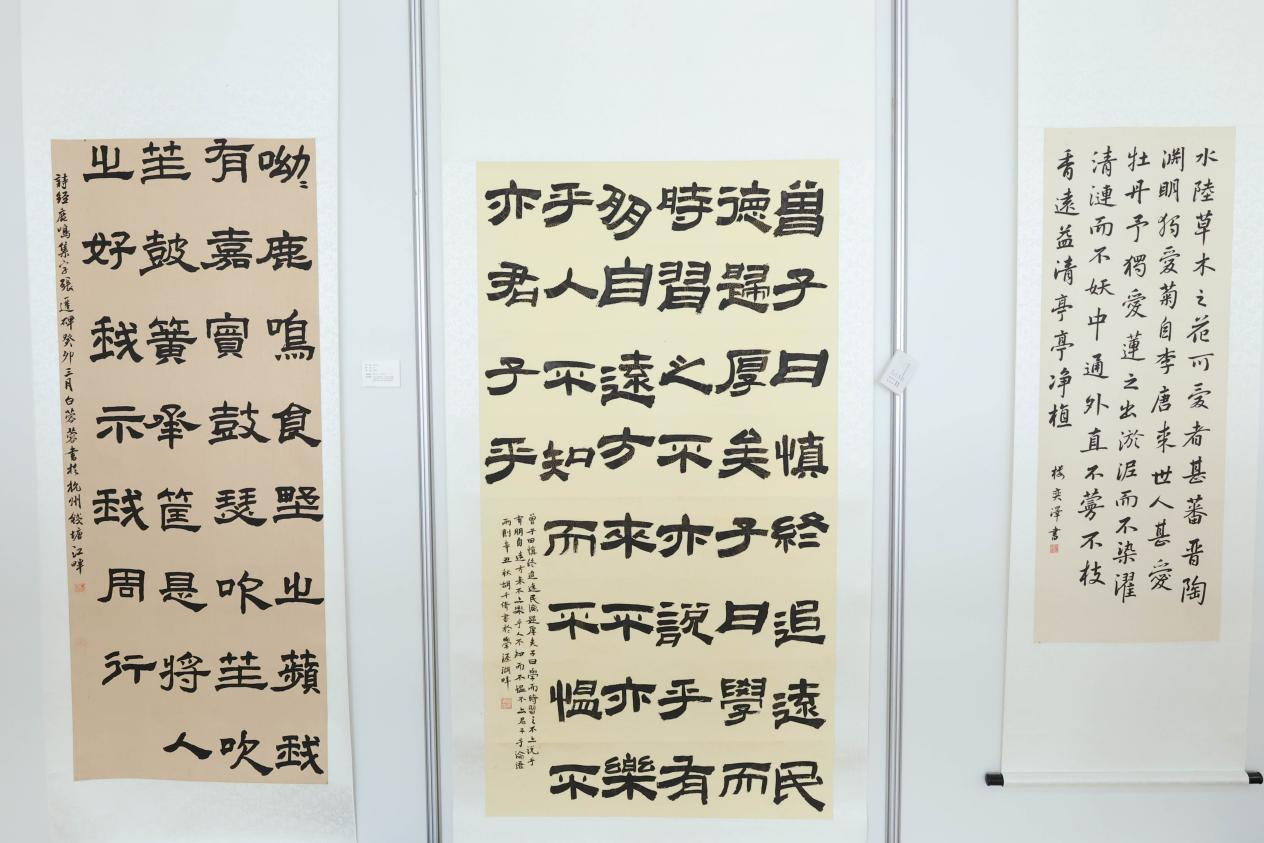 呦〻鹿鳴食野之蘋我
有嘉賓鼓瑟吹笙吹
笙鼓簧承筐是將人
之好我示我周行
詩經鹿鳴集字張遷碑癸卯三月白蓉蓉書於杭州錢塘江畔
曾子曰慎終追遠民
德歸厚矣子曰學而
時習之不亦說乎有
朋自遠方來不亦樂
乎人不知而不慍不
亦君子乎
曾子曰慎終追遠民德歸厚矣子曰學而時習之不亦说乎
有朋自遠方来不亦樂乎人不知而不慍不亦君子乎論語
兩則辛丑秋胡千倚書於學源湖畔
水陸草木之花可愛者甚蕃晋陶
渊明独愛菊自李唐来世人甚愛
牡丹予獨愛蓮之出淤泥而不染濯
清漣而不妖中通外直不蔓不枝
香遠益清亭亭净植
楼奕澤書